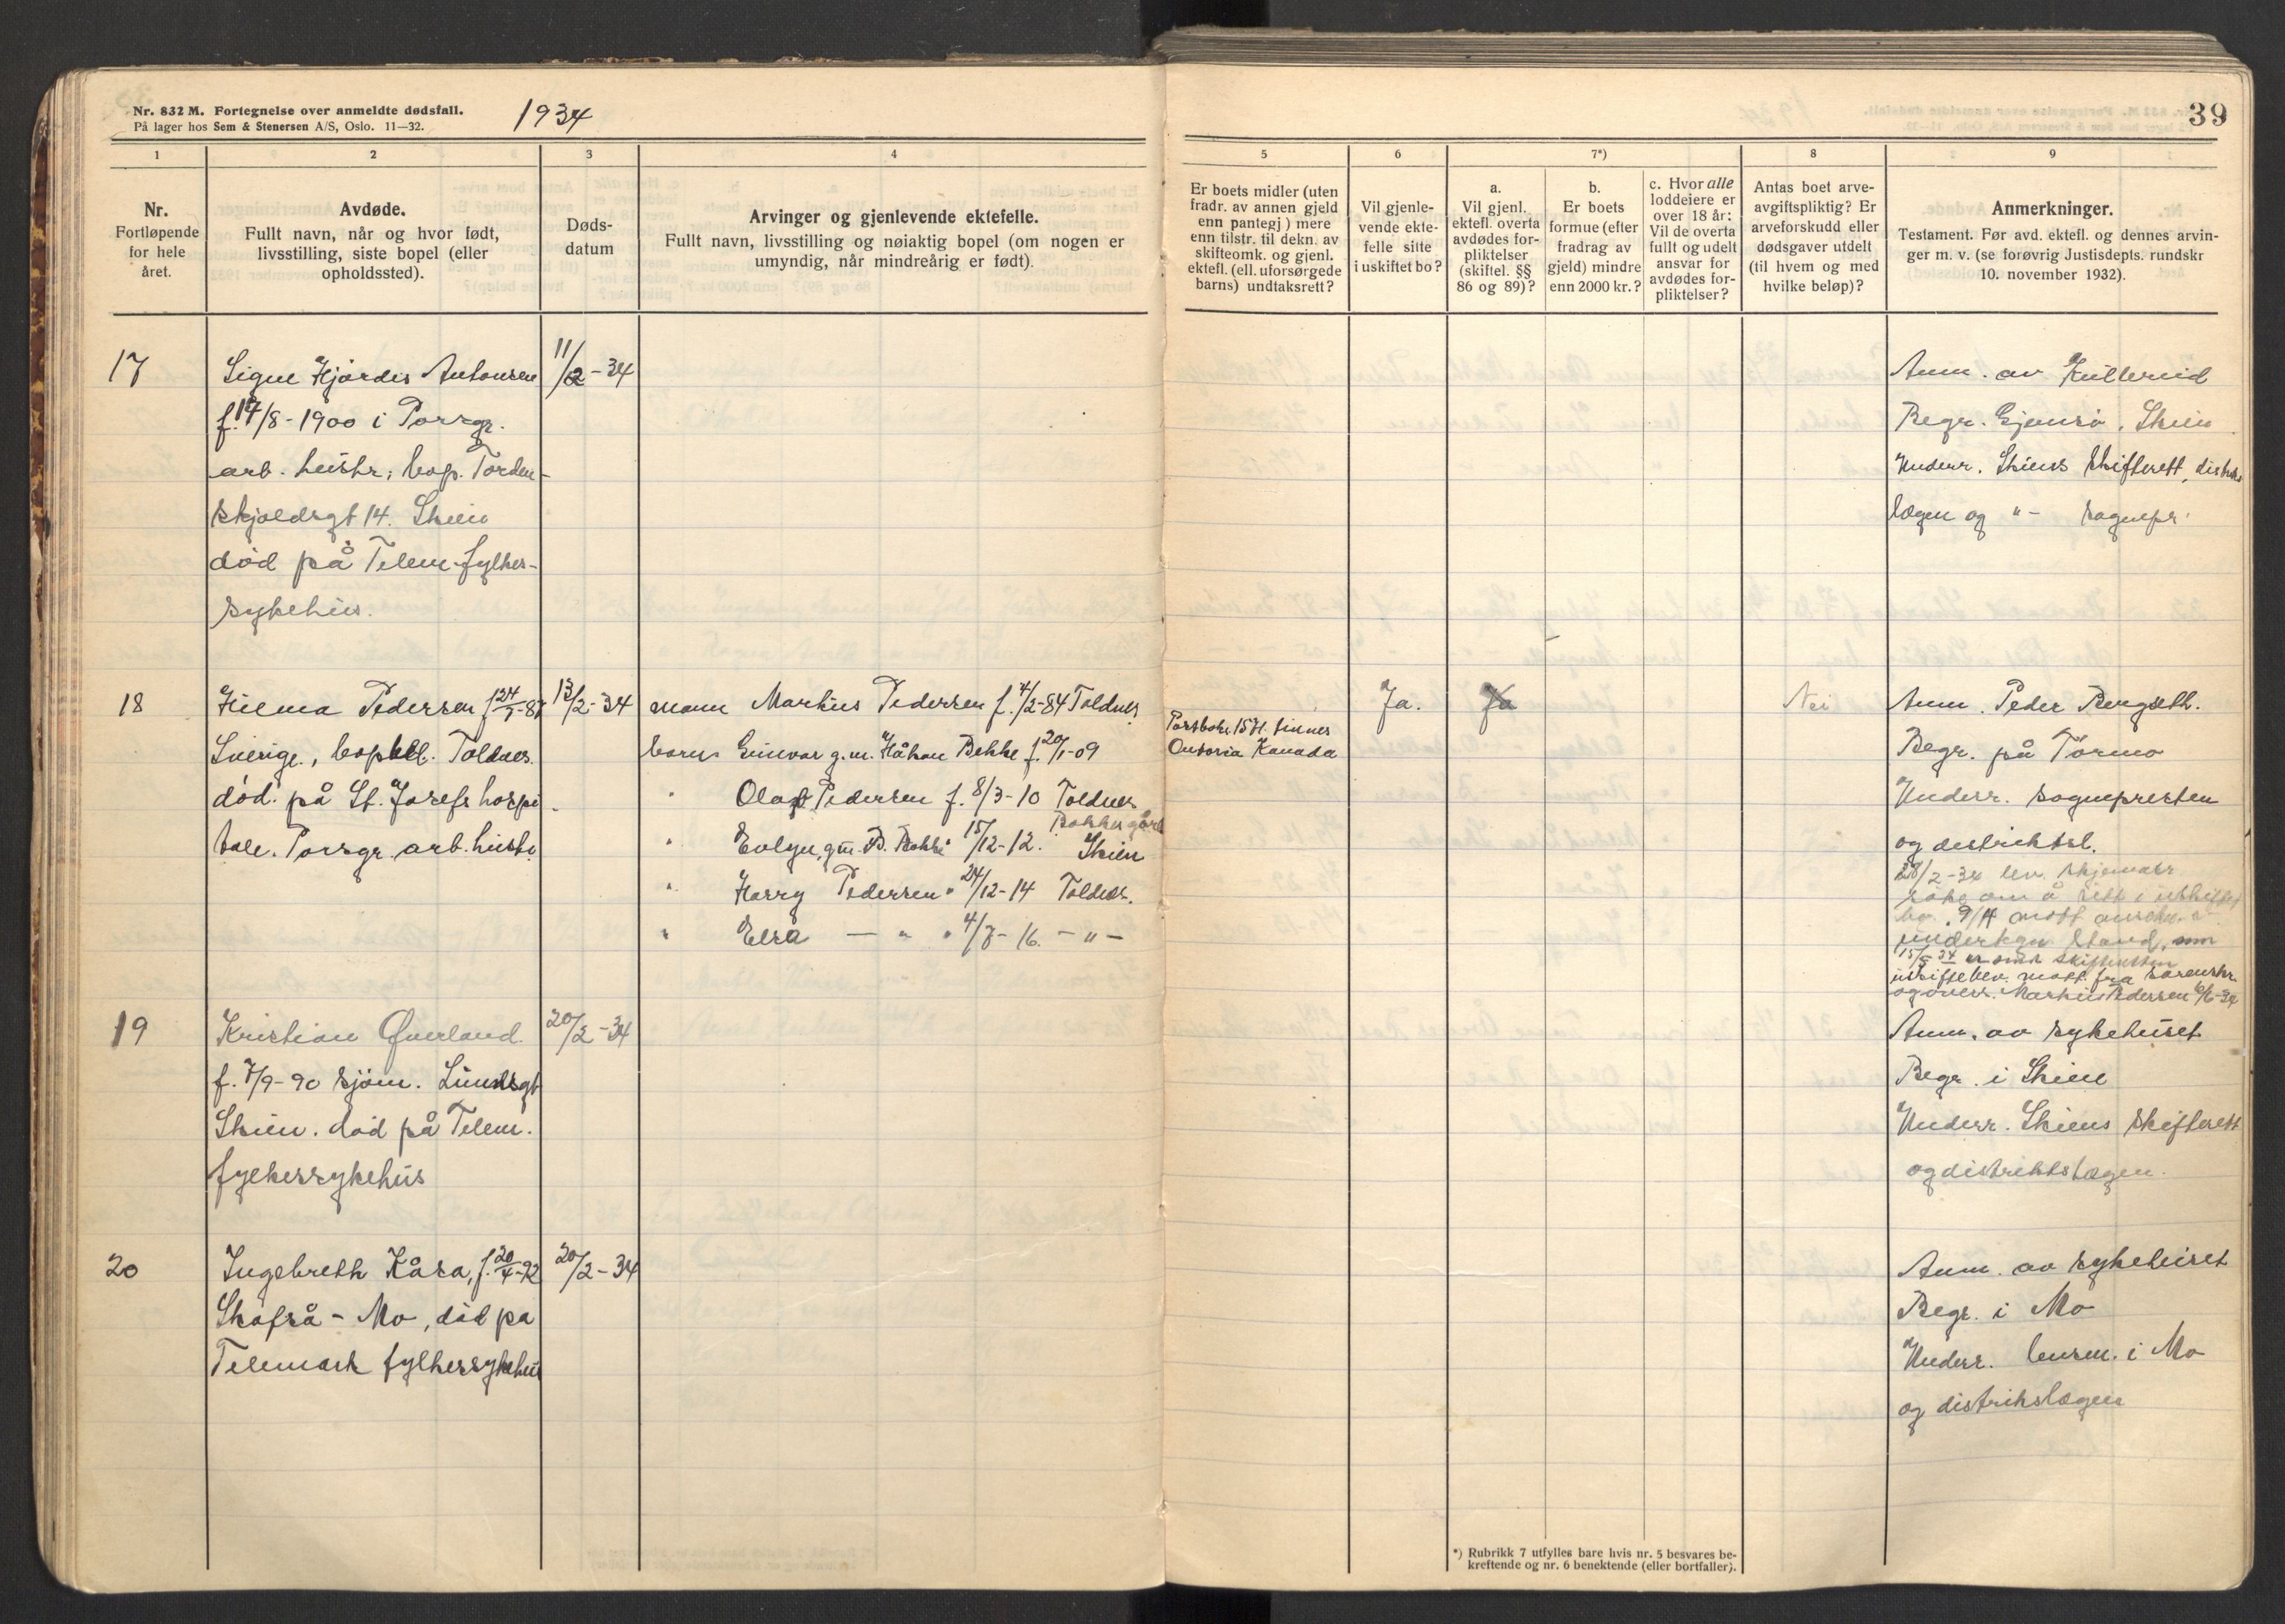 Nr. 832 M. Fortegnelse over anmeldte dødsfall.
På lager hos Sem & Stenersen A/S, Oslo. 11—32.
1934
39
1
2
3
4
5
6
7*)
8
9
Nr.
Fortløpende
for hele
året.
Avdøde.
Fullt navn, når og hvor født,
livsstilling, siste bopel (eller
opholdssted).
Døds-
datum
Arvinger og gjenlevende ektefelle.
Fullt navn, livsstilling og nøiaktig bopel (om nogen er
umyndig, når mindreårig er født).
Er boets midler (uten
fradr. av annen gjeld
enn pantegj) mere
enn tilstr. til dekn. av
skifteomk. og gjenl.
ektefl. (ell. uforsørgede
barns) undtaksrett?
Vil gjenle-
vende ekte-
felle sitte
i uskiftet bo?
a.
Vil gjenl.
ektefl. overta
avdødes for-
pliktelser
(skiftel. §§
86 og 89)?
b.
Er boets
formue (efter
fradrag av
gjeld) mindre
enn 2000 kr.?
c. Hvor alle
loddeiere er
over 18 år:
Vil de overta
fullt og udelt
ansvar for
avdødes for-
pliktelser?
Antas boet arve-
avgiftspliktig? Er
arveforskudd eller
dødsgaver utdelt
(til hvem og med
hvilke beløp)?
Anmerkninger.
Testament. Før avd. ektefl. og dennes arvin-
ger m. v. (se forøvrig Justisdepts. rundskr
10. november 1932).
17
Signe Hjørdis Antonsen
f. 17/8-1900 i Porsgr.
arb. hustr. bop. Torden-
skjoldsgt 14. Skien
død på Telem. fylkes-
sykehus.
11/2-34
Anm. av Kullerud
Begr. Gjemsø, Skien
Underr. Skiens skifterett, distrikts
lægen og "- sognepr.
18
Hilma Pedersen f. 24/7-87
Sverige, bopell. Toldnes.
død på St. Josefs hospi-
tale. Porsgr. arb. hustr.
13/2-34
mann Markus Pedersen f. 4/2-84 Toldnes
barn Gunvor g.m. Håkon Bekke f. 20/1-09
Postboks 1571. Linnes
Ontoria Kanada
" Olaf Pedersen f. 8/3-10 Toldnes
" Evlyn, gm. B. Bakke 15/12-12. Bakkegård
Skien
" Harry Pedersen " 24/12-14 Toldnes.
" Elsa — " " 4/7-16. — " —
Ja.
Ja
Nei
Anm. Peder Rengseth.
Begr. på Tørmo
Underr. sognepresten
og destriktsl.
28/2-34 lev. skjemaer
søke om å sitt i uskiftet
bo. 9/4 mott.
undertegn. stand, som
15/5 34 er sendt skifteretten
uskiftebev. mott. fra sorenskr.
og overs. Markus Pedersen 6/6-34
19
Kristian Øverland
f. 7/9-90 sjøm. Lundsgt
Skien. død på Telem.
fylkessykehus
20/2-34
Anm. av sykehuset
Begr. i Skien
Underr. Skiens skifterett
og distriktslægen.
20
Ingebreth Kåsa, f. 20/4-92
Skafså - Mo, død på
Telemark fylkessykehus
20/2-34
Anm. av sykehuset
Begr. i Mo
Underr. lensm. i Mo
og distrikslægen
*) Rubrikk 7 utfylles bare hvis nr. 5 besvares be-
kreftende og nr. 6 benektende (eller bortfaller).